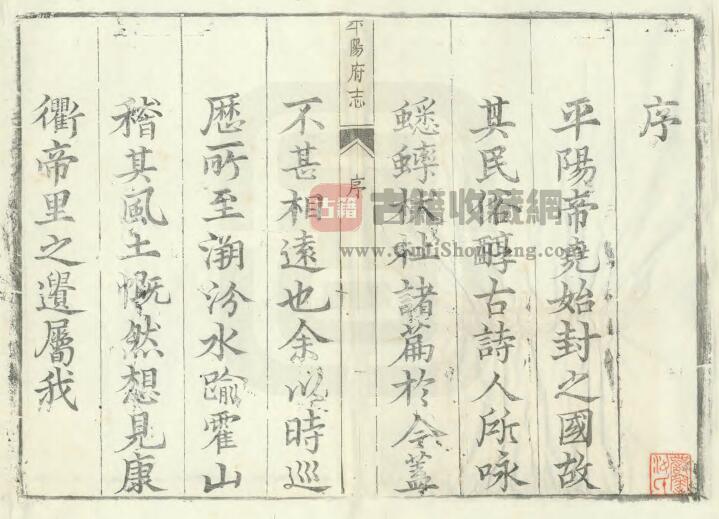 序
平陽帝堯始封之國故
其民俗醇古詩人所咏
蟋蟀杕杜諸篇於今蓋
平陽府志
序
不甚相遠也余以時巡
歷所至溯汾水踰霍山
稽其風土慨然想見康
衢帝里之遺屬我
古籍
古籍收藏網